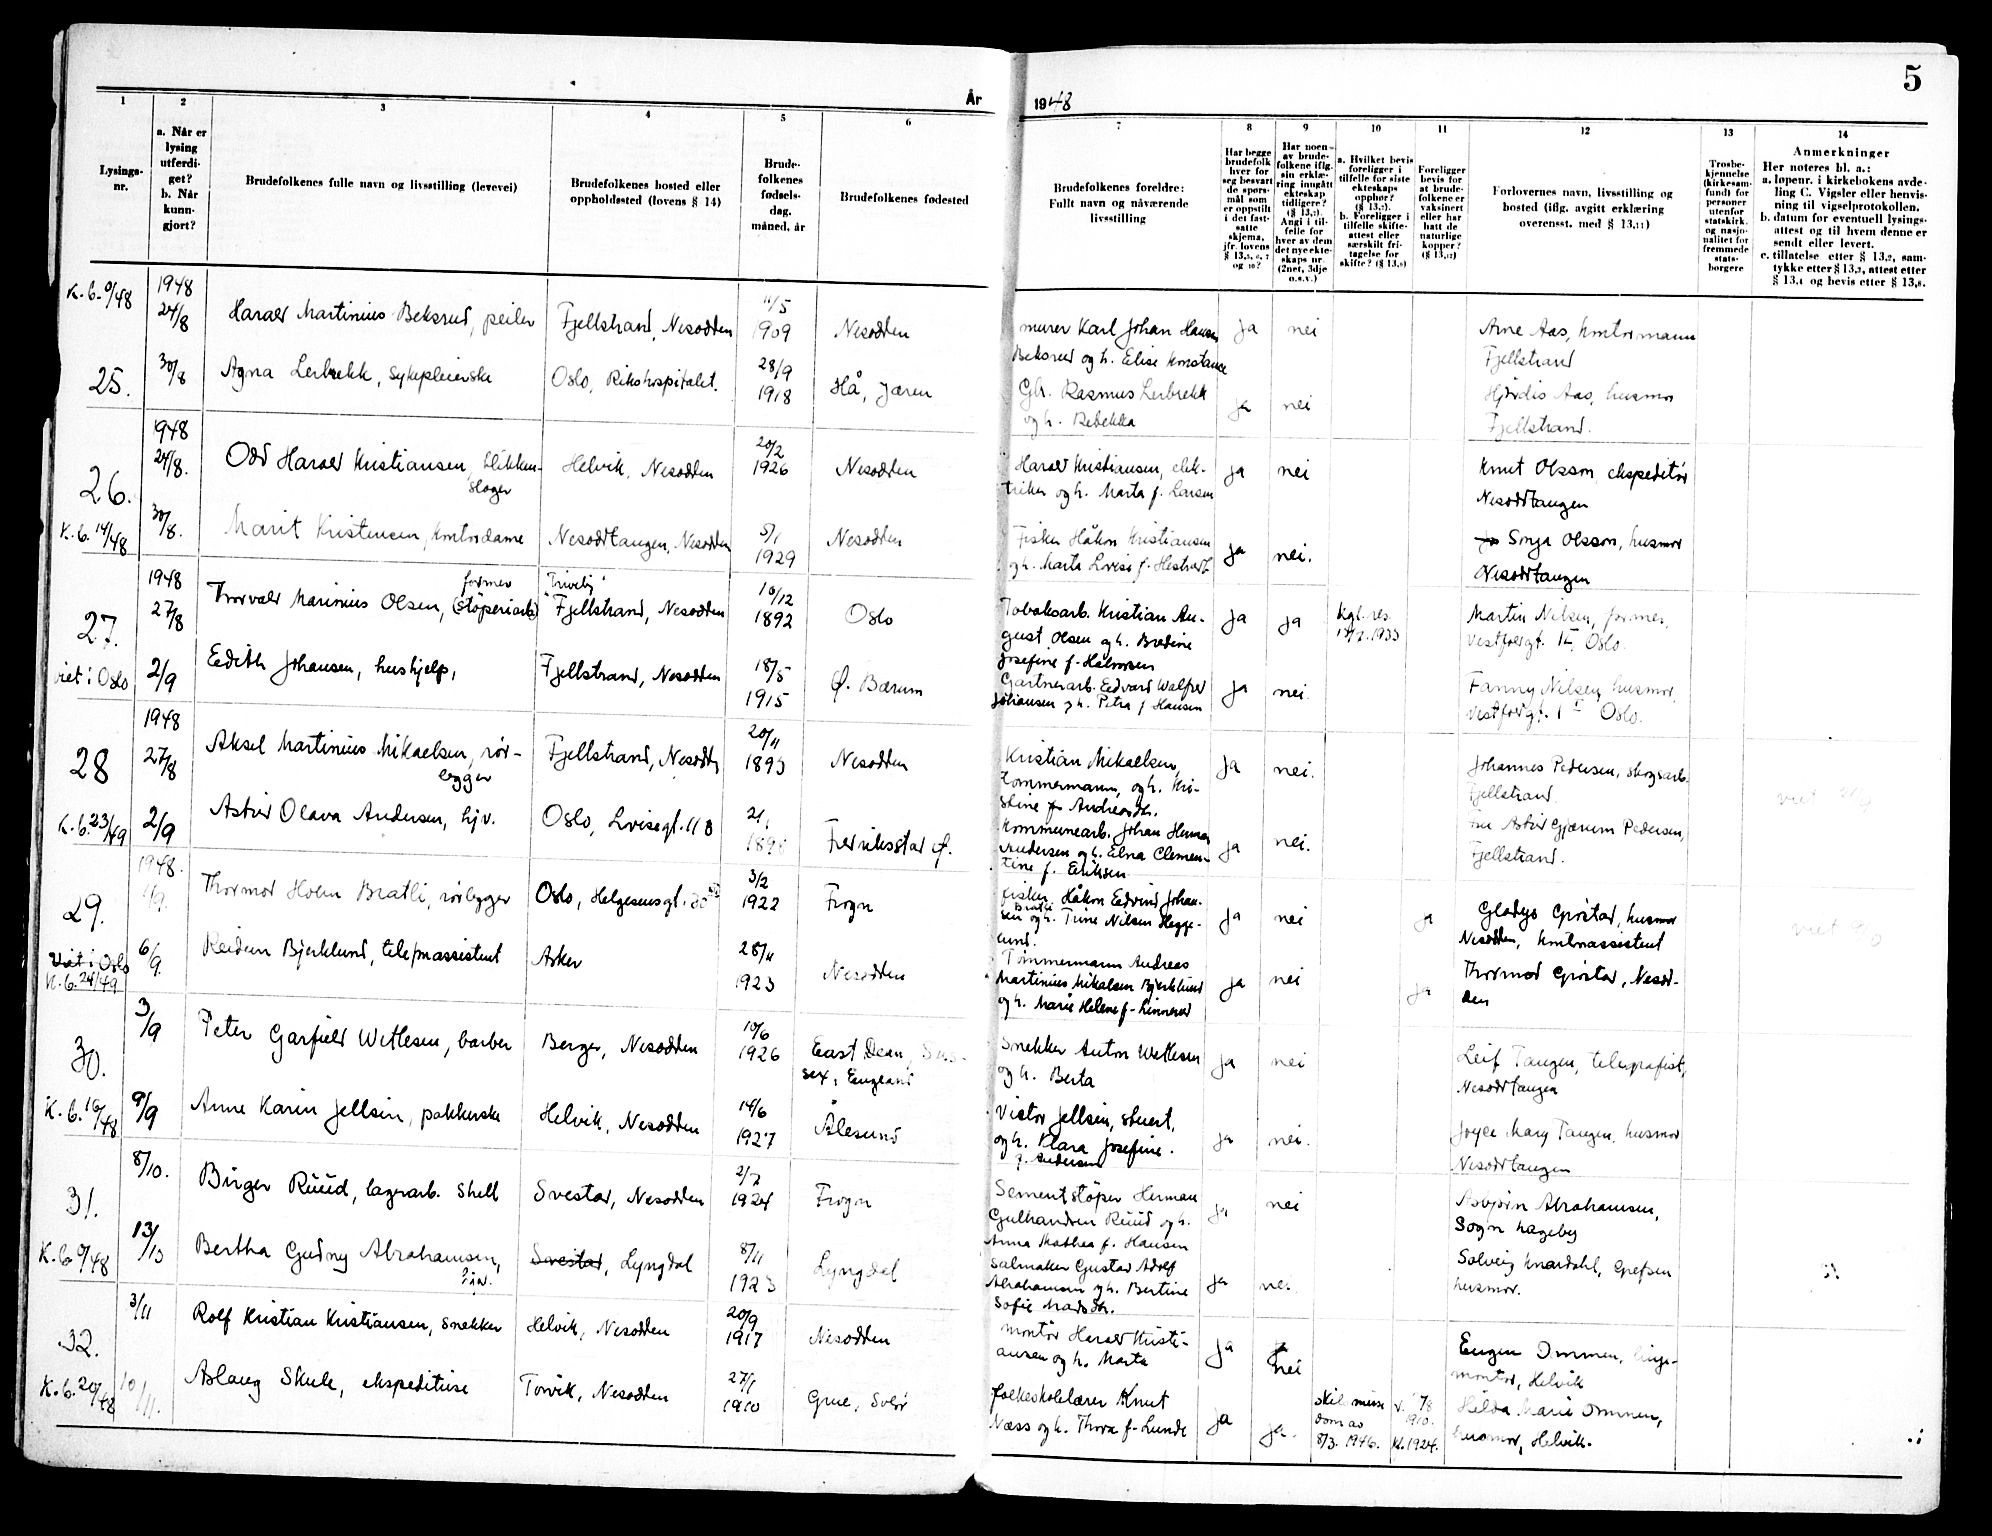 5
År 1948
1
Lysings-
nr.
2
a. Når er
lysing
utferdi-
get?
b. Når
kunn-
gjort?
3
Brudefolkenes fulle navn og livsstilling (levevei)
4
Brudefolkenes bosted eller
oppholdssted (lovens § 14)
5
Brude-
folkenes
fødsels-
dag,
måned, år
6
Brudefolkenes fødested
7
Brudefolkenes foreldre:
Fullt navn og nåværende
livsstilling
8
Har begge
brudefolk
hver for
seg besvart
de spørs-
mål som
er oppstilt
i det fast-
satte
skjema,
jfr. lovens
9
Har noen
av brude-
folkene iflg.
sin erklæ-
ring inngått
ekteskap
tidligere?
Angi i til-
felle for
hver av dem
det nye ekte-
skaps nr
(2net, 3dje
o.s.v.)
10
a. Hvilket bevis
foreligger i
tilfelle for siste
ekteskaps
opphør?
b. Foreligger i
tilfelle skifte-
attest eller
særskilt fri-
tagelse for
skifte?
11
Foreligger
bevis for
at brude-
folkene er
vaksinert
eller har
hatt de
naturlige
kopper?
12
Forlovernes navn, livsstilling og
bosted (iflg. avgitt erklæring
overensst. med § 13,11)
13
Trosbe-
kjennelse
(kirkesam-
fund) for
personer
utenfor
statskirk.
og nasjo-
nalitet for
fremmede
stats-
borgere
14
Anmerkninger
Her noteres bl. a.:
a. løpenr. i kirkebokens avde-
ling C. Vigsler eller henvis-
ning til vigselprotokollen.
b. datum for eventuell lysings-
attest og til hvem denne er
sendt eller levert.
c. tillatelse etter § 13,2, sam-
tykke etter § 13,3, attest etter
§ 13,4 og bevis etter § 13,8.
K.b. 9/48 1948 24/8 Harald Martinius Beksrud, peiler Fjellstrand, Nesodden 11/5 1909 Nesodden murer Karl Johan Hansen ja nei Arne Aas, kontormann
Beksrud og h. Elise Konstance Fjellstrand
25. 30/8 Agna Lerbrekk, sykepleierske Oslo, Rikshospitalet. 28/9 1918 Hå, Jæren Gbr. Rasmus Lerbrekk ja nei Hjørdis Aas, husmor
og h. Rebekka Fjellstrand.
26. 1948 24/8. Odd Harald Kristiansen, blikken- Helvik, Nesodden 20/2 1926 Nesodden Harald Kristiansen, elek- ja nei Knut Olsson, ekspeditør
slager triker og h. Marta f. Larsen Nesoddtangen
K.b. 14/48 30/8. Marit Kristensen, kontordame Nesoddtangen, Nesodden 5/1 1929 Nesodden Fisker Håkon Kristiansen ja nei. Sonja Olsson, husmor
og h. Marta Lovise f. Nesoddtangen
27. 1948 27/8 Thorvald Marinius Olsen, former (støperiarb) "Trivelig" Fjellstrand, Nesodden 10/12 1892 Oslo Tobaksarb. Kristian Au- ja ja kgl. res. 1933 Martin Nilsen, former,
gust Olsen og h. Bredine Oslo.
Josefine f. Halvorsen
viet i Oslo 2/9 Edith Johansen, hushjelp, Fjellstrand, Nesodden 18/5 1915 Ø. Bærum Gartnerarb. Edvard Walfred ja nei. Fanny Nilsen, husmor,
Johansen og h. Petra f Hansen Oslo.
28 1948 27/8 Aksel Martinius Mikaelsen, rør- Fjellstrand, Nesodden 20/11 1893 Nesodden Kristian Mikaelsen, ja nei. Johannes Pedersen, skogsarb.
legger tømmermann, og h. Kri- Fjellstrand
stine f. Andreasdtr. viet
K.b. 23/49 2/9 Astrid Olava Andersen, hjv. Oslo, Lovisegt. 11 B Fredriksstad Ø. Kommunearb. Johan Herman ja nei. fru Astrid Gjærum Pedersen,
Andersen og h. Elna Clemen- Fjellstrand.
tine f. Eriksen
29. 1948. Thormod Holm Bratli, rørlegger Oslo, Helgesensgt. 3/2 1922 Frogn fisker Håkon Edvind Johan- ja nei ja Gladys Grøstad, husmor
sen Bratli og h. Trine Nilsen Hegge- Nesodden, kontorassistent
lund. viet
Viet i Oslo K.b. 24/49 6/9. Reidun Bjerklund, telefonassistent Asker 28/11 1923 Nesodden Tømmermann Andreas ja nei ja Thormod Grøstad, Nesod-
Martinius Mikalsen Bjerklund den
og h. Marie Helene f. Linnerud
30. 3/9 Peter Garfield Wetlesen, barber Berger, Nesodden 10/6 1926 East Dean, Sus- Snekker Anton Wetlesen ja nei Leif Tangen, telegrafist,
sex, England og h. Berta Nesoddtangen
K.b. 16/48 9/9 Anne Karin Jellsin, pakkerske Helvik, Nesodden 14/6 1927 Ålesund Victor Jellsin, stuert, ja nei. Joyce Mary Tangen, husmor
og h. Klara Josefine. Nesoddtangen
f. Andersen
31. 8/10. Birger Ruud, lagerarb. Shell Svestad, Nesodden 2/7 1924 Frogn Sementstøper Herman ja nei Asbjørn Abrahamsen,
Gulhandsen Ruud og h. Sogn hageby
Anna Mathea f. Hansen
K.b. 9/48 13/10 Bertha Gudny Abrahamsen, Svestad, Lyngdal 8/11 1923 Lyngdal salmaker Gustav Adolf ja nei Solveig Knardahl, Grefsen
hjv. Abrahamsen og h. Bertine husmor.
Sofie Madsdtr.
32. 3/11 Rolf Kristian Kristiansen, snekker Helvik, Nesodden 20/9 1917 Nesodden montør Harald Kristi- ja nei Eugen Ommen, linje-
ansen og h. Marta montør, Helvik
K.b. 20/48 10/11. Aslaug Skule, ekspeditrise Torvik, Nesodden 27/1 1910 Grue, Solør folkeskolelærer Knut ja ja. skilsmisse v. 7/8 1910. Hilda Marie Ommen,
Næss og h. Thora f. Lunde dom av 8/3. 1946. kl. 1924. husmor, Helvik.